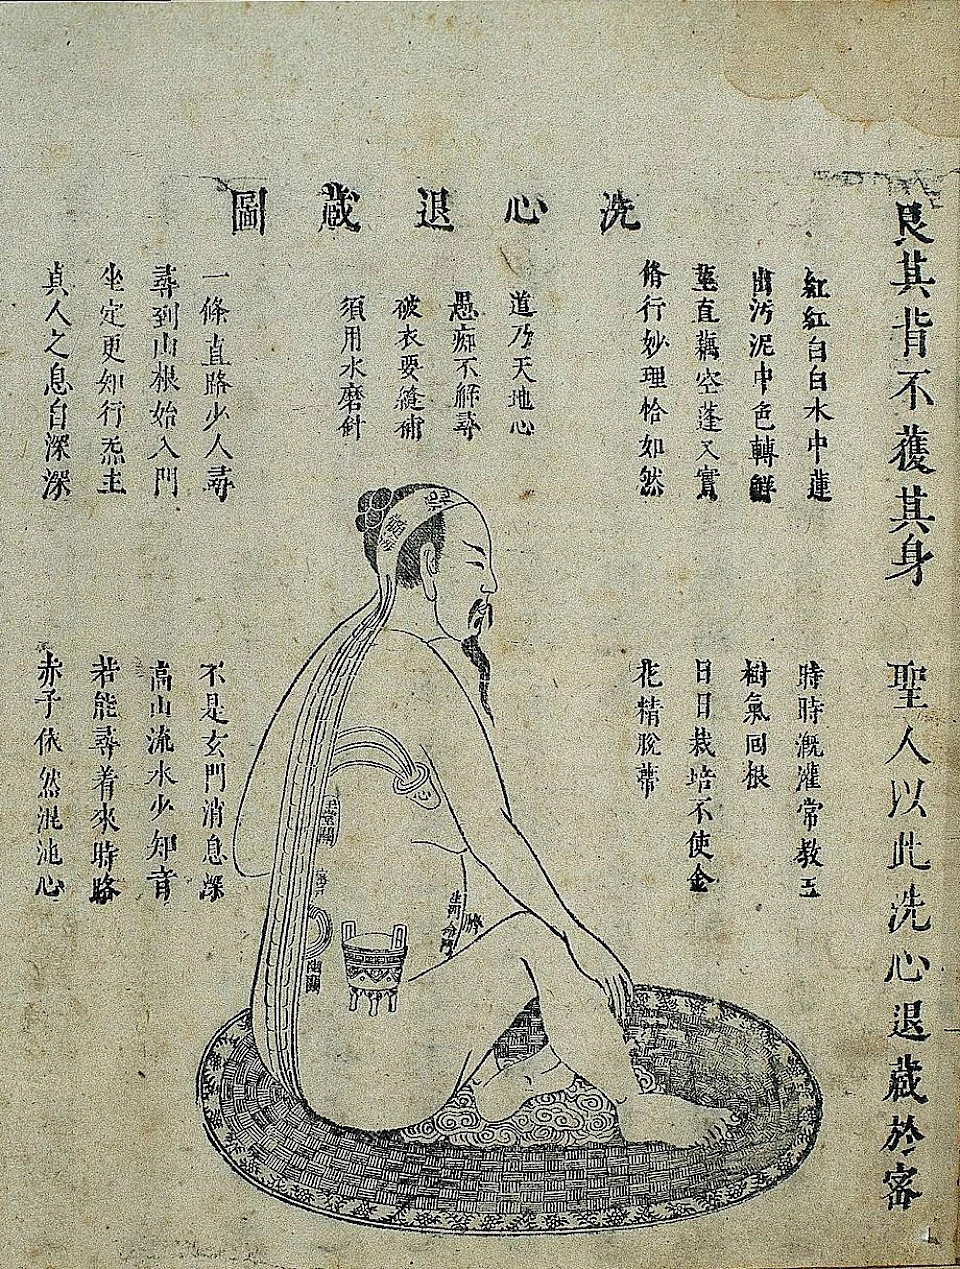 艮其背不獲其身
聖人以此洗心退藏於密
洗心退藏圖
紅紅白白水中蓮
出污泥中色轉鮮
莖直藕空蓬又實
脩行妙理恰如然
道乃天地心
愚痴不解尋
破衣要縫補
須用水磨針
一條直路少人尋
尋到山根始入門
坐定更知行炁主
真人之息自深深
時時溉灌常教玉
樹氣回根
日日栽培不使金
花精脫蒂
不是玄門消息深
高山流水少知音
若能尋着來時路
赤子依然混沌心
髓海
心
幽關